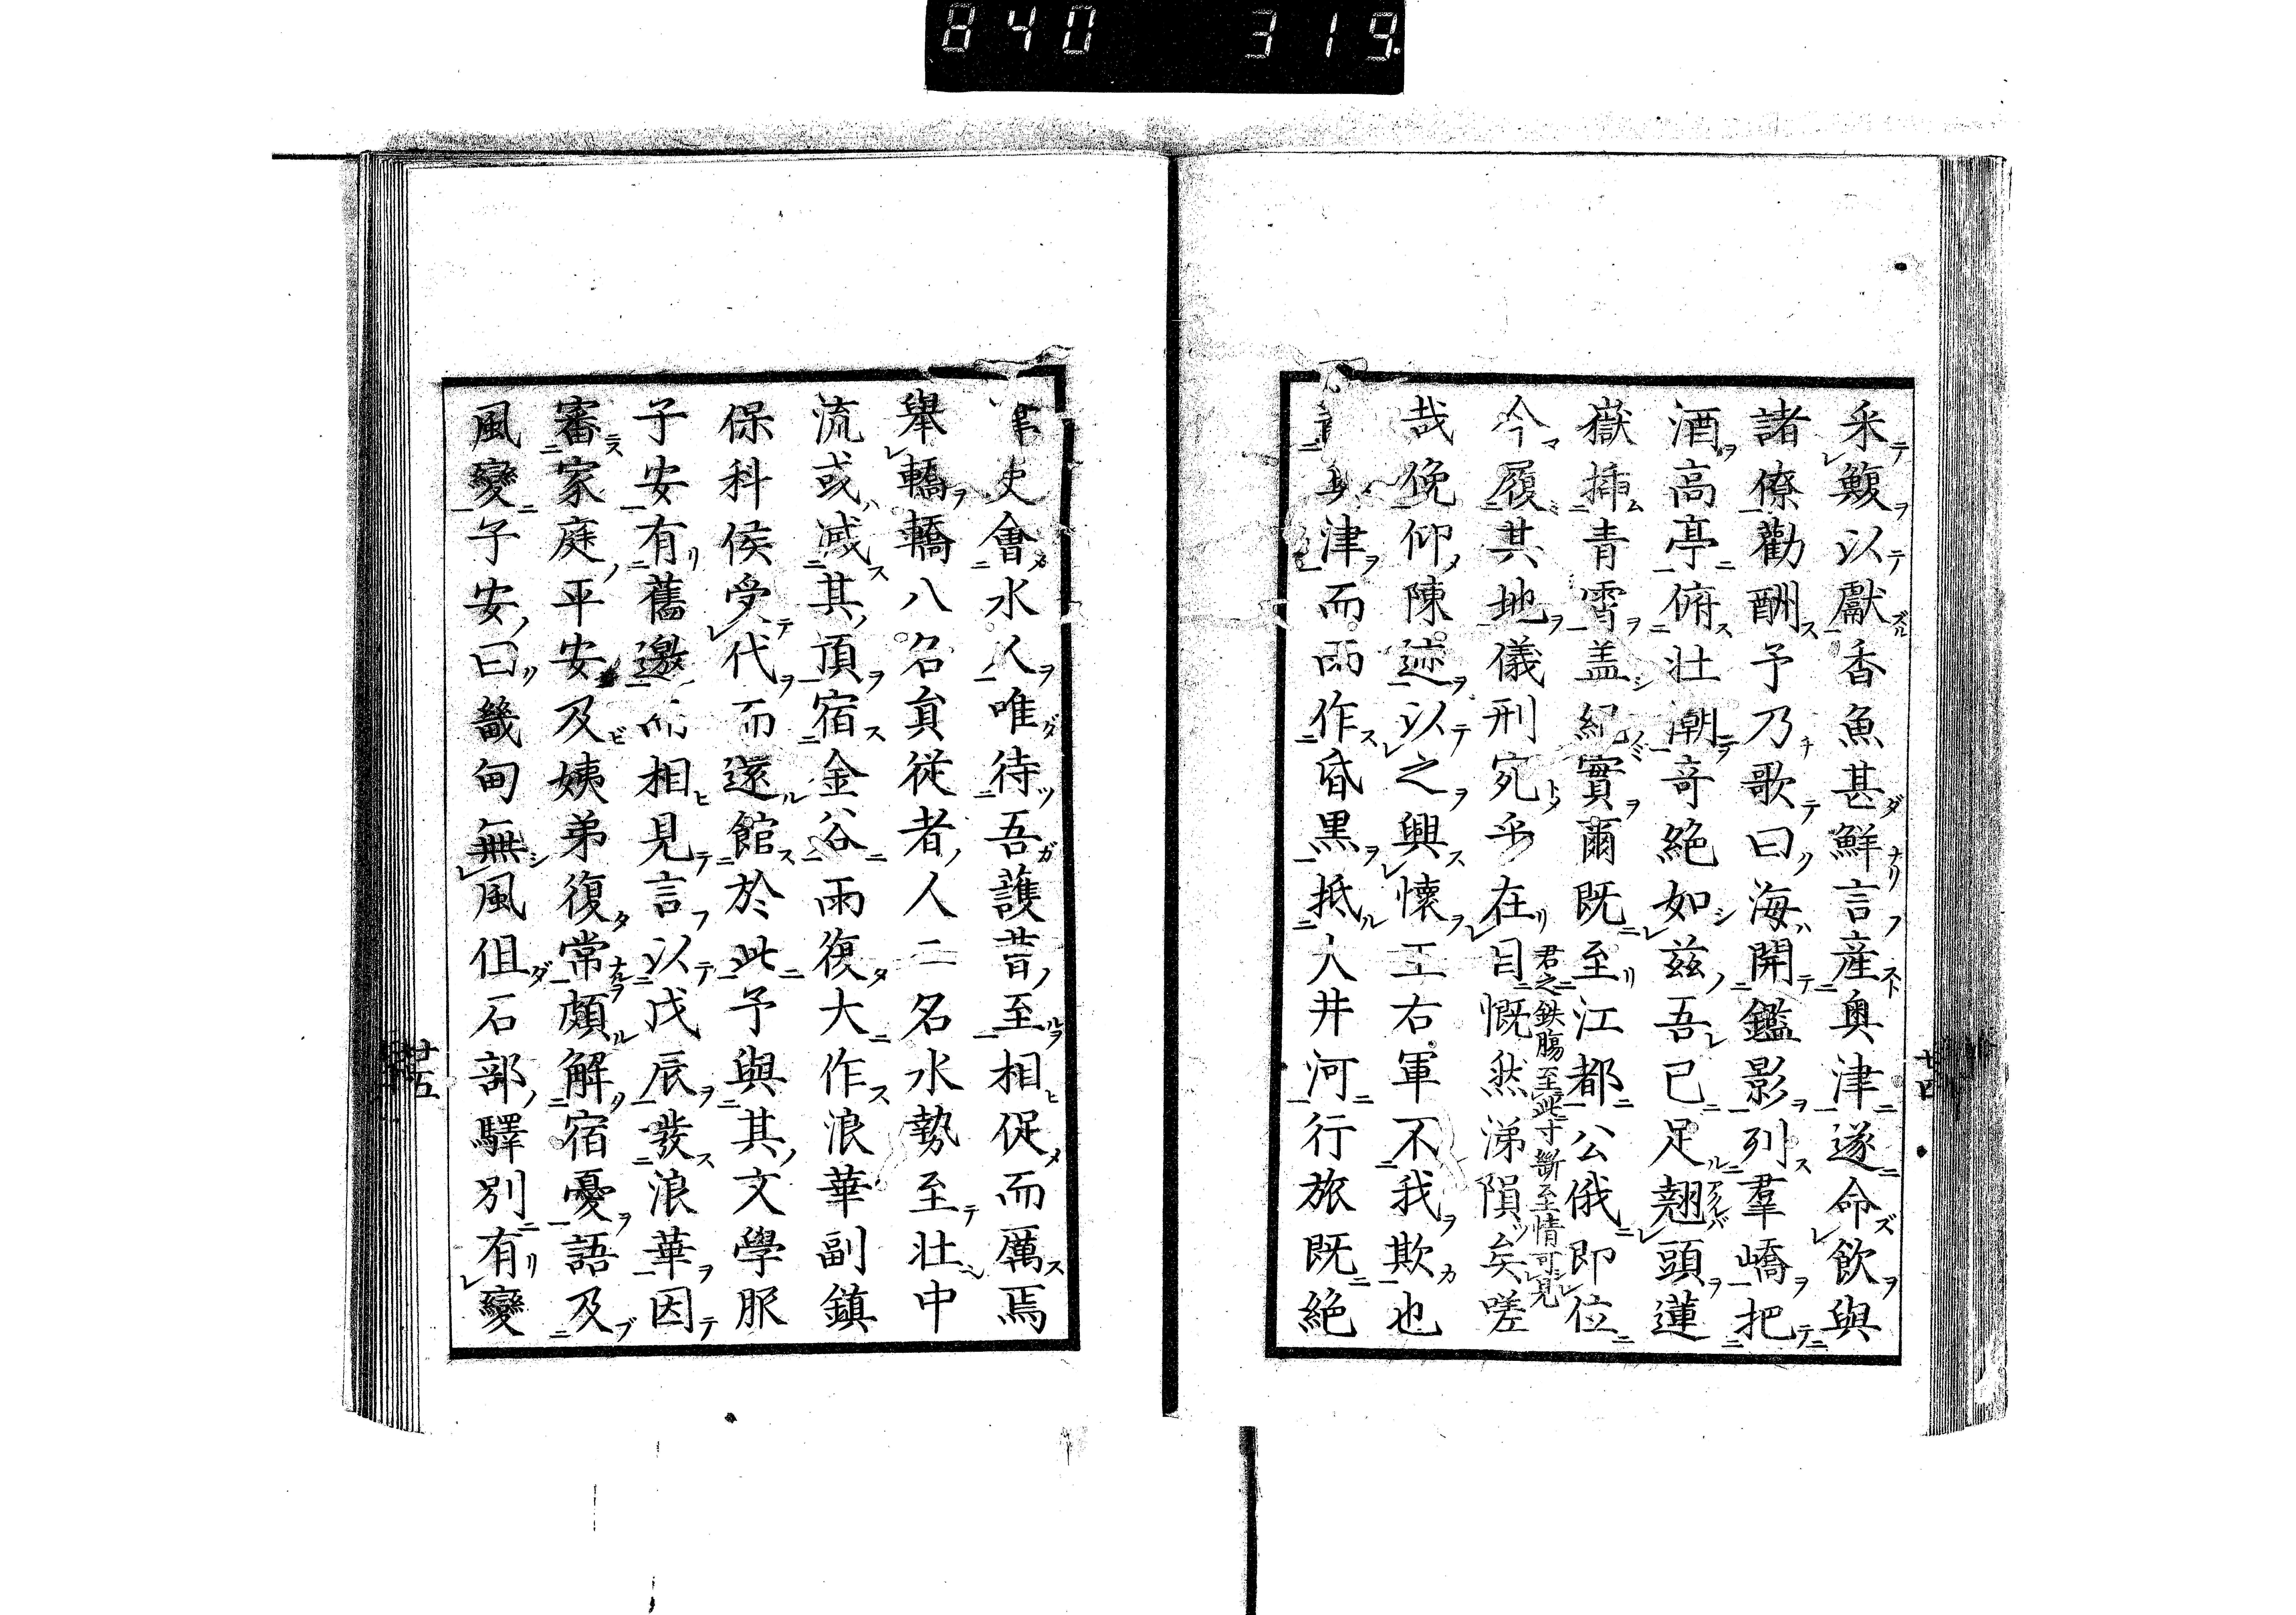 840 319
采鰒以獻香魚甚鮮言產奥津遂命飲與
諸僚勸酬予乃歌曰海開鑑影列羣嶠把
酒高亭俯壮潮竒絕如兹吾已足翹頭蓮
嶽挿青霄盖紀實爾既至江都公俄即位
君之鉄膓至此寸斷至情可見
今履其地儀刑宛乎在目慨然涕隕矣嗟
哉俛仰陳迹以之興懷王右軍不我欺也
津而雨作昏黒抵大井河行旅既絕
廿四
吏會水人唯待吾護昔至相促而厲焉
舉轎轎八名眞從者人二名水勢至壮中
流或减其頂宿金谷雨復大作浪華副鎮
保科侯受代而還館於此予與其文學服
子安有舊邀而相見言以戊辰發浪華因
審家庭平安及姨弟復常頗解宿憂語及
風變子安曰畿甸無風但石部驛別有變
廿五